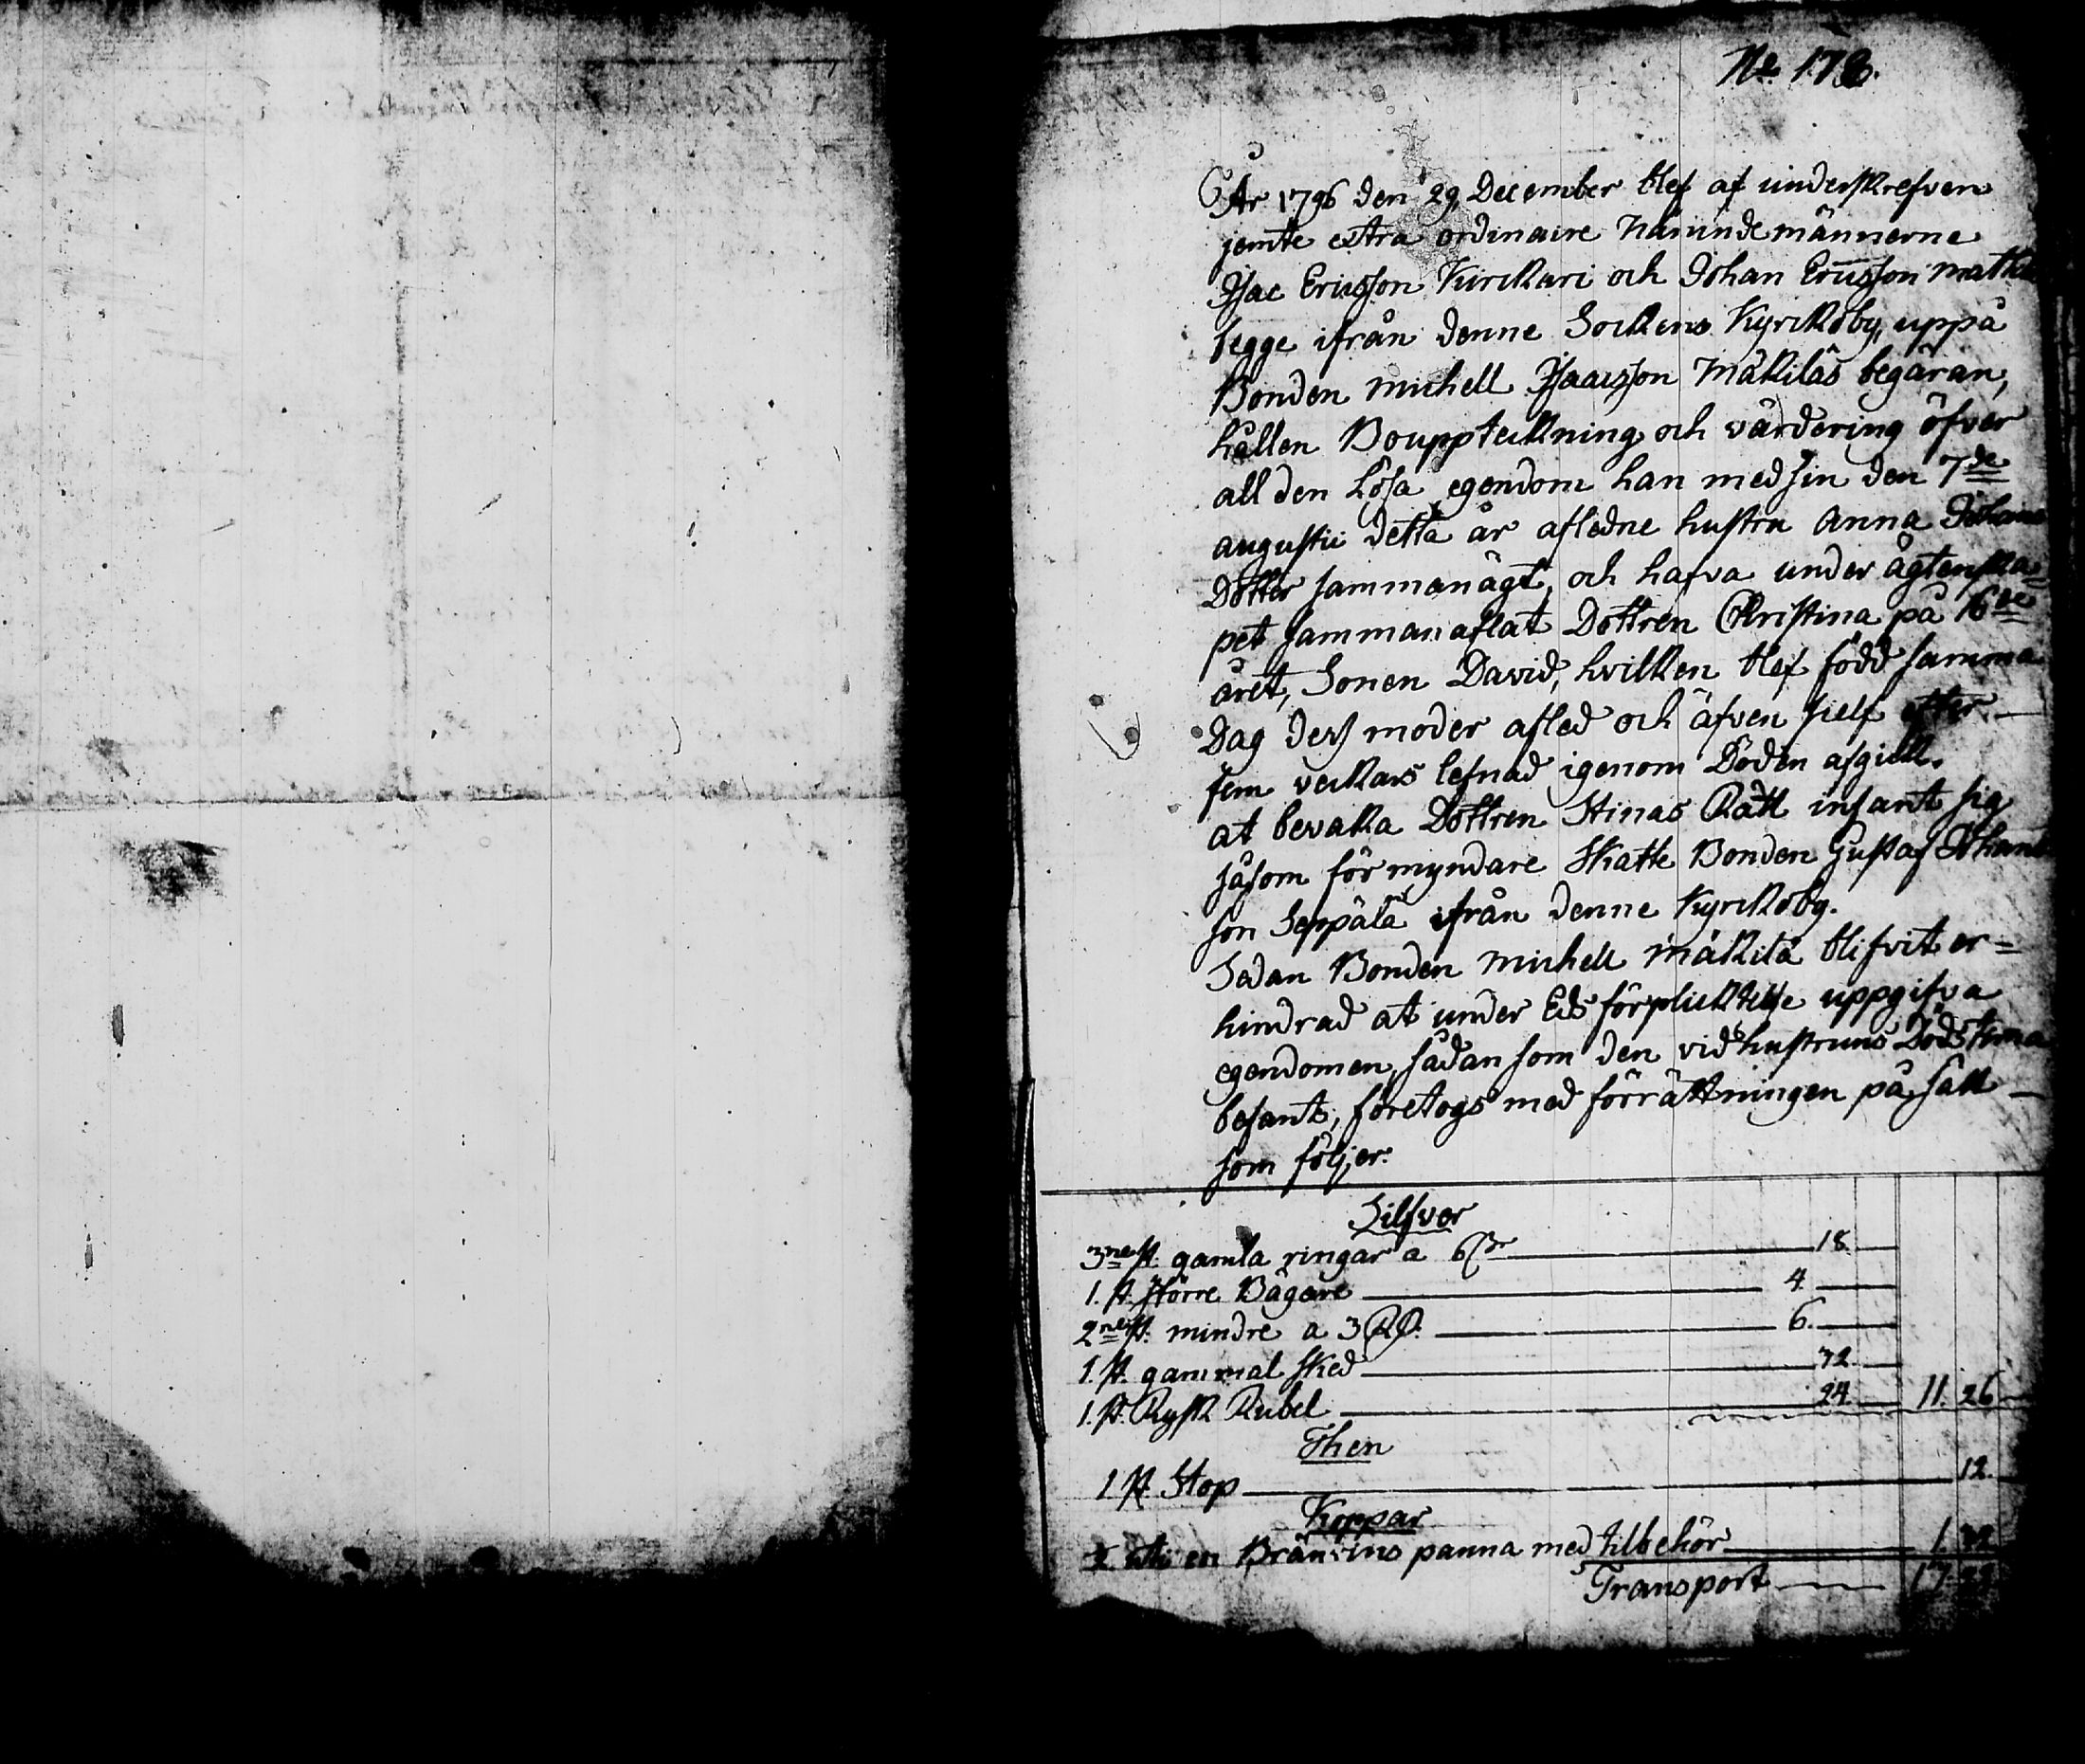 No 178.
År 1796 den 29 December blef af underskrefven
jemte extra ordinaire Nämndemännerne
Isac Ericsson Kirckari och Johan Ericsson
begge ifrån denne Sockens Kyrckoby, uppå
Bonden Michell Isacsson Mäkiläs begäran,
hållen Bouppteckning och värdering öfver
all den Lösa egendom han med sin den 7de
augustii detta år afledne hustru Anna Johans
Dotter sammanägt, och hafva under ägtenska=
pet sammanaflat Dottren Christina på 16de
året, Sonen David, hvilken blef född samma
Dag dess moder afled och äfven sielf efter
fem veckars lefnad igenom Döden afgick.
at bevaka Dottren Stinas Rätt infant sig
såsom förmyndare Skatte Bonden Gustaf Johans
son Seppälä ifrån denne Kyrckoby.
Sedan Bonden Michell Mäkilä blifvit er=
hindrad at under Eds förplicktelse uppgifva
egendomen, sådan som den vid hustruns Dödstima
befants, företogs med förrättningen på sätt
som följer:
Silfver
3ne st. gamla ringar a 6 sr 18
1. st. större Bägare 4
2ne st. mindre a 3 RD. 6.
1. st. gammal sked 32
1. st. Rysk Rubel 24 11. 26
Then
1 st. Stop 12.
Koppar
uti en Bränvins panna med tilbehör 1. 32
Transport